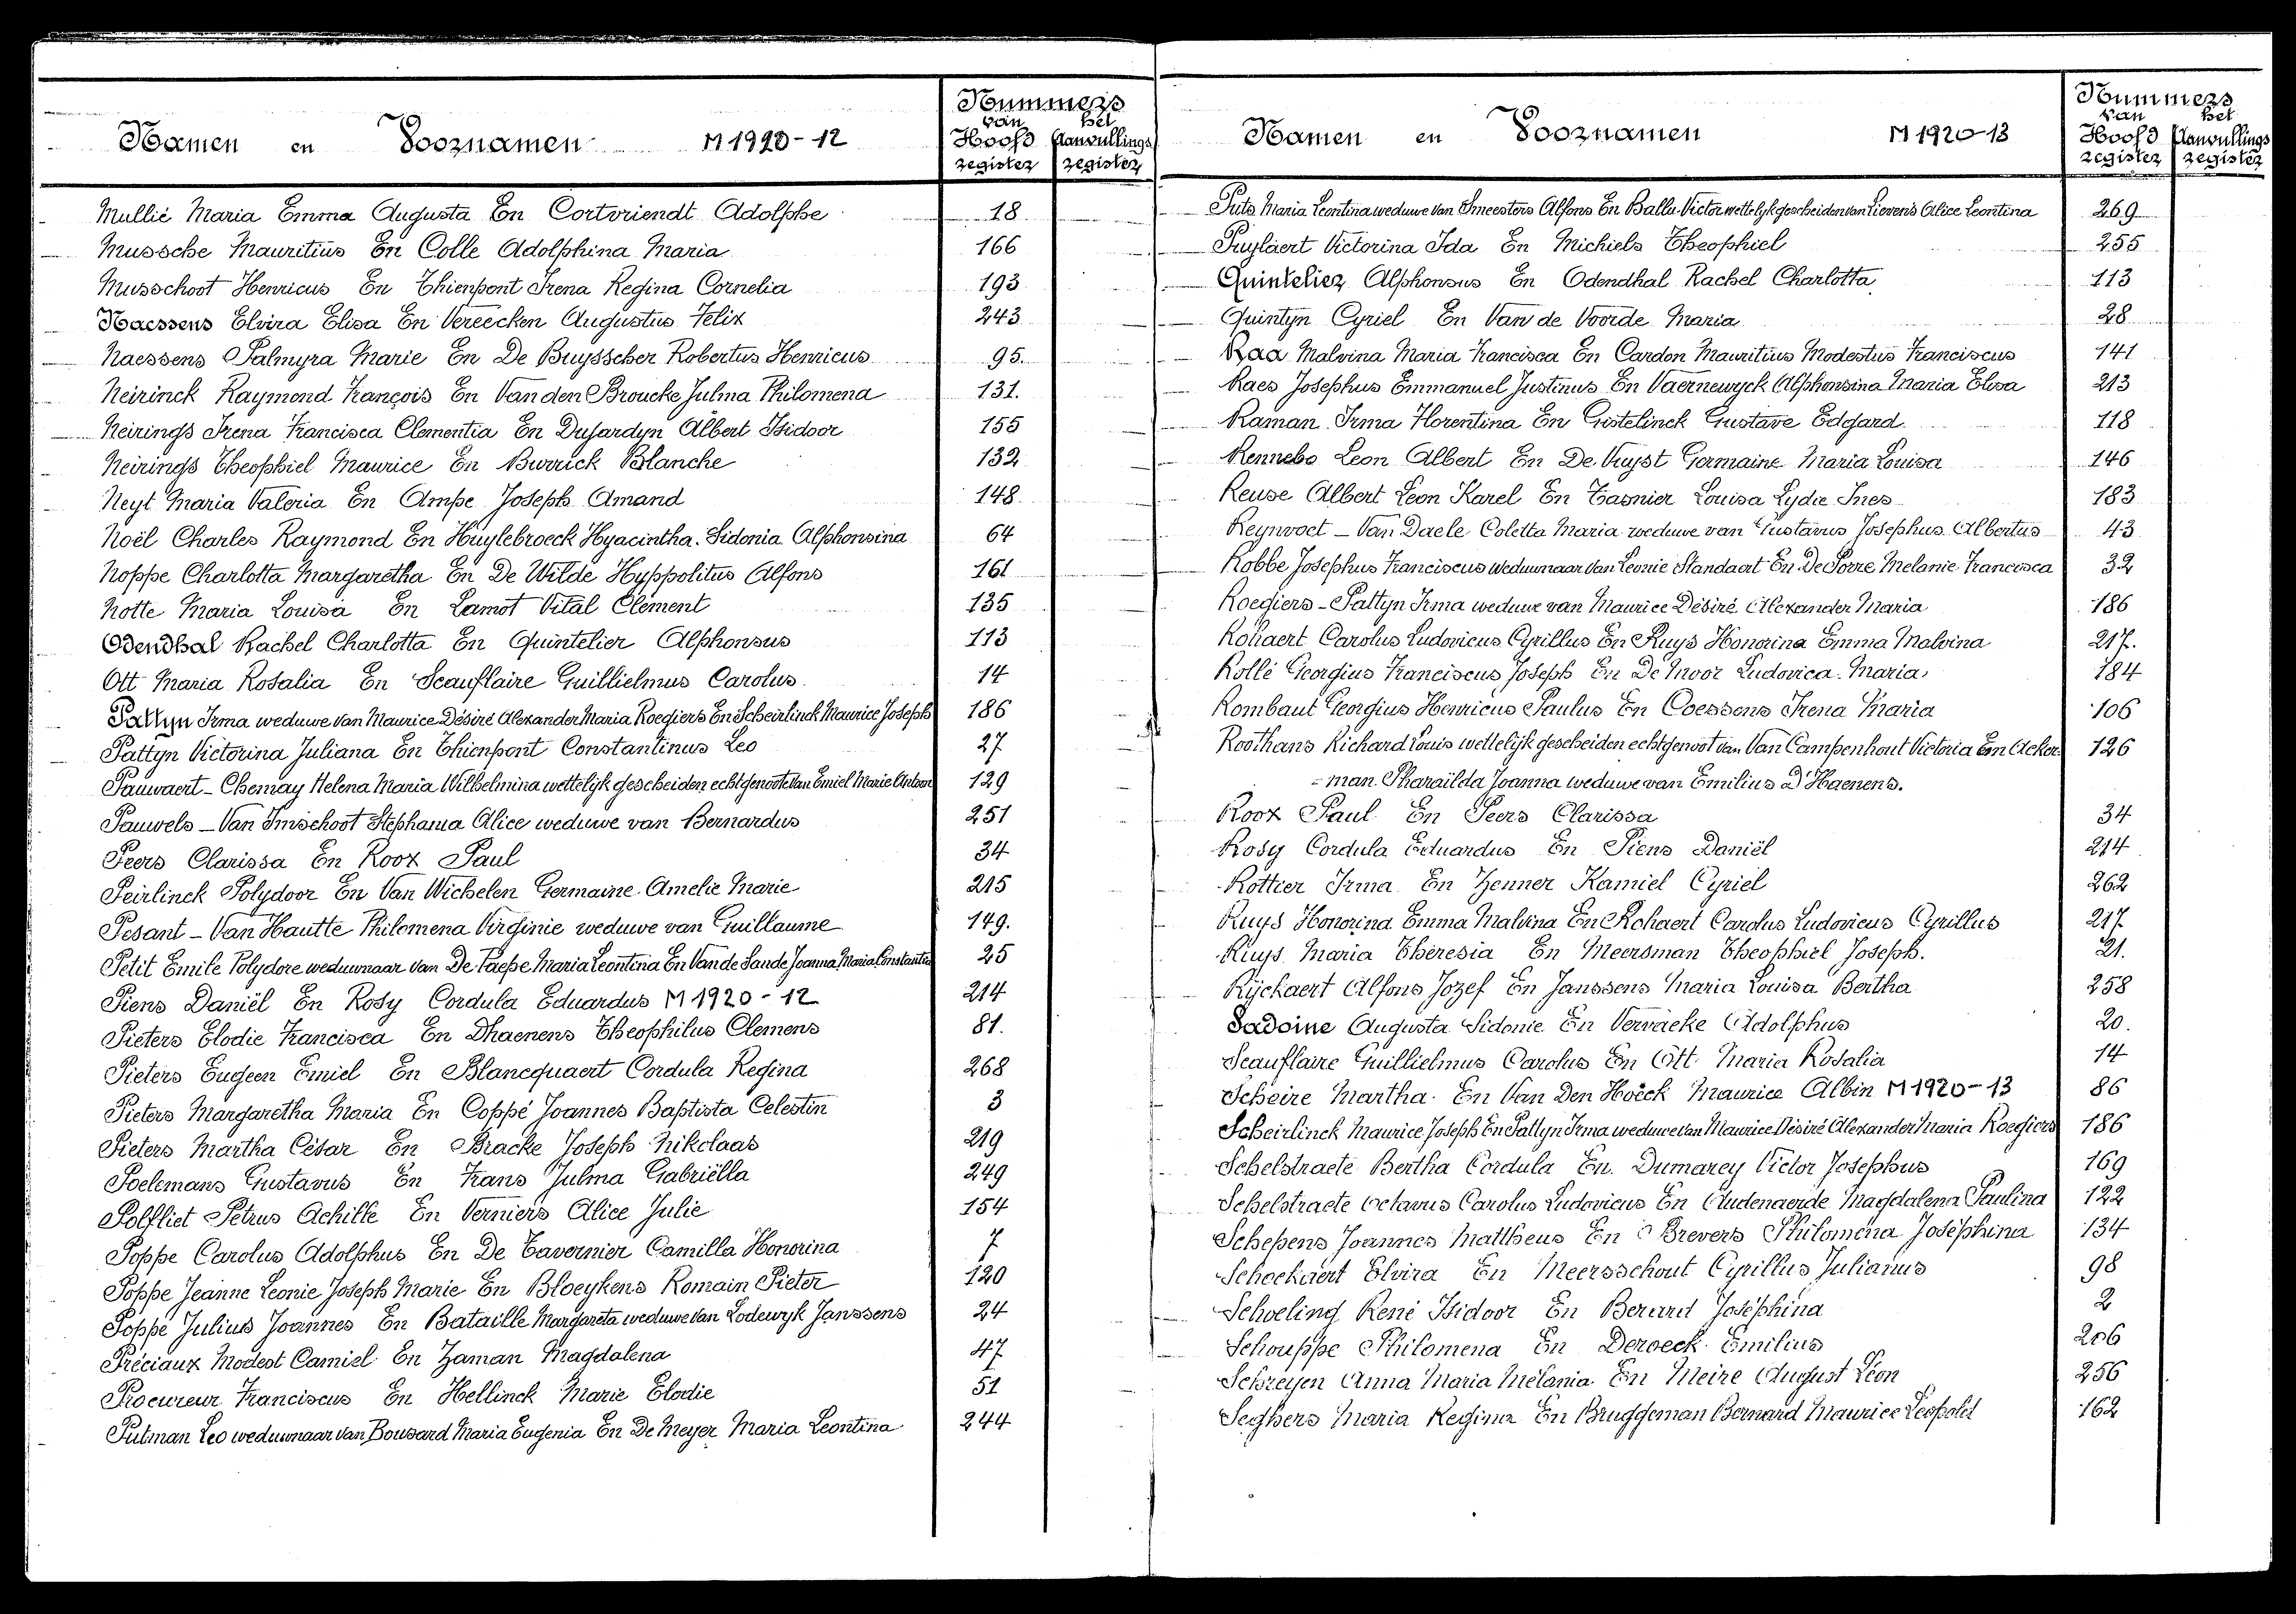 Namen en Voornamen M 1920-12
Nummers
van het
Hoofd Aanvullings
register register
Mullié Maria Emma Augusta En Cortvriendt Adolphe 18
Mussche Mauritius En Colle Adolphina Maria 166
Musschoot Henricus En Thienpont Irena Regina Cornelia 193
Naessens Elvira Elisa En Vereecken Augustus Felix 243
Naessens Palmyra Marie En De Buysscher Robertus Henricus 95.
Neirinck Raymond François En Van den Broucke Julma Philomena 131.
Neirings Irena Francisca Clementia En Dujardyn Albert Isidoor 155
Neirings Theophiel Maurice En Burrick Blanche 132
Neyt Maria Valeria En Ampe Joseph Amand 148
Noël Charles Raymond En Huylebroeck Hyacintha Sidonia Alphonsina 64
Noppe Charlotta Margaretha En De Wilde Hyppolitus Alfons 161
Notte Maria Louisa En Lamot Vital Clement 135
Odendhal Rachel Charlotta En Quintelier Alphonsus 113
Ott Maria Rosalia En Scauflaire Guillielmus Carolus 14
Pattyn Irma weduwe van Maurice Désiré Alexander Maria Roegiers En Scheirlinck Maurice Joseph 186
Pattyn Victorina Juliana En Thienpont Constantinus Leo 27
Pauwaert - Chemay Helena Maria Wilhelmina wettelijk gescheiden echtgenoote van Emiel Marie Antoon 129
Pauwels - Van Imschoot Stephania Alice weduwe van Bernardus 251
Peers Clarissa En Roox Paul 34
Peirlinck Polydoor En Van Wichelen Germaine Amelie Marie 215
Pesant - Van Hautte Philomena Virginie weduwe van Guillaume 149.
Petit Emile Polydore weduwnaar van De Paepe Maria Leontina En Van de Sande Joanna Maria Constantia 25
Piens Daniël En Rosy Cordula Eduardus M 1920-12 214
Pieters Elodie Francisca En Dhaenens Theophilus Clemens 81.
Pieters Eugeen Emiel En Blancquaert Cordula Regina 268
Pieters Margaretha Maria En Coppé Joannes Baptista Celestin 3
Pieters Martha César En Bracke Joseph Nikolaas 219
Poelemans Gustavus En Frans Julma Gabriëlla 249
Polfliet Petrus Achille En Verniers Alice Julie 154
Poppe Carolus Adolphus En De Tavernier Camilla Honorina 7
Poppe Jeanne Leonie Joseph Marie En Bloeykens Romain Pieter 120
Poppe Julius Joannes En Bataille Margareta weduwe van Lodewyk Janssens 24
Préciaux Modest Camiel En Zaman Magdalena 47
Procureur Franciscus En Hellinck Marie Elodie 51
Putman Leo weduwnaar van Bousard Maria Eugenia En De Meyer Maria Leontina 244
Namen en Voornamen M 1920-13
Nummers
van het
Hoofd Aanvullings
register register
Puts Maria Leontina weduwe van Smeesters Alfons En Balla Victor wettelijk gescheiden van Lievens Alice Leontina 269
Puylaert Victorina Ida En Michiels Theophiel 255
Quintelier Alphonsus En Odendhal Rachel Charlotta 113
Quintyn Cyriel En Van de Voorde Maria 28
Raa Malvina Maria Francisca En Cardon Mauritius Modestus Franciscus 141
Raes Josephus Emmanuel Justinus En Vaernewyck Alphonsina Maria Elisa 213
Raman Irma Florentina En Gistelinck Gustave Edgard 118
Rennebo Leon Albert En De Vuyst Germaine Maria Louisa 146
Reuse Albert Leon Karel En Tasnier Louisa Lydie Ines 183
Reynvoet - Van Daele Coletta Maria weduwe van Gustavus Josephus Albertus 43
Robbe Josephus Franciscus weduwnaar van Leonie Standaert En De Porre Melanie Francisca 32
Roegiers - Pattyn Irma weduwe van Maurice Désiré Alexander Maria 186
Rohaert Carolus Ludovicus Cyrillus En Ruys Honorina Emma Malvina 217.
Rollé Georgius Franciscus Joseph En De Moor Ludovica Maria 184
Rombaut Georgius Henricus Paulus En Coessens Irena Maria 106
Roothans Richard Louis wettelijk gescheiden echtgenoot van Van Campenhout Victoria En Acker 126
= man Pharaïlda Joanna weduwe van Emilius D'Haenens.
Roox Paul En Peers Clarissa 34
Rosy Cordula Eduardus En Piens Daniël 214
Rottier Irma En Zenner Kamiel Cyriel 262
Ruys Honorina Emma Malvina En Rohaert Carolus Ludovicus Cyrillus 217
Ruys Maria Theresia En Meersman Theophiel Joseph. 21.
Rijckaert Alfons Jozef En Janssens Maria Louisa Bertha 258
Sadoine Augusta Sidonie En Vervaeke Adolphus 20.
Scauflaire Guillielmus Carolus En Ott Maria Rosalia 14
Scheire Martha En Van Den Hoeck Maurice Albin M 1920-13 86
Scheirlinck Maurice Joseph En Pattyn Irma weduwe van Maurice Désiré Alexander Maria Roegiers 186
Schelstraete Bertha Cordula En. Dumarey Victor Josephus 169
Schelstraete Octavus Carolus Ludovicus En Audenaerde Magdalena Paulina 122
Schepens Joannes Mattheus En Brevers Philomena Joséphina 134
Schockaert Elvira En Meersschout Cyrillus Julianus 98
Schoeling René Isidoor En Berard Joséphina 2
Schouppe Philomena En Deroeck Emilius 206
Schreyen Anna Maria Mélania En Meire August Léon 256
Seghers Maria Regina En Bruggeman Bernard Maurice Leopold 162